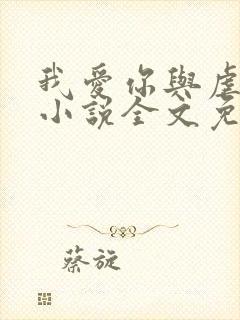 我愛你與
小說全文免
蔡旋